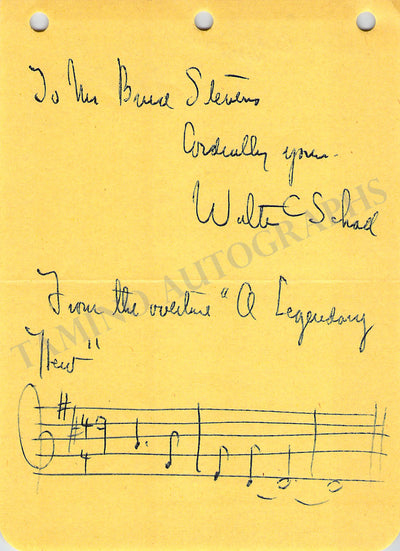 To Mr Bruce Stevens
Cordially yours
Walter C Schad
From the overture "A Legendary
TAMINO AUTOGRAPHS
4
4